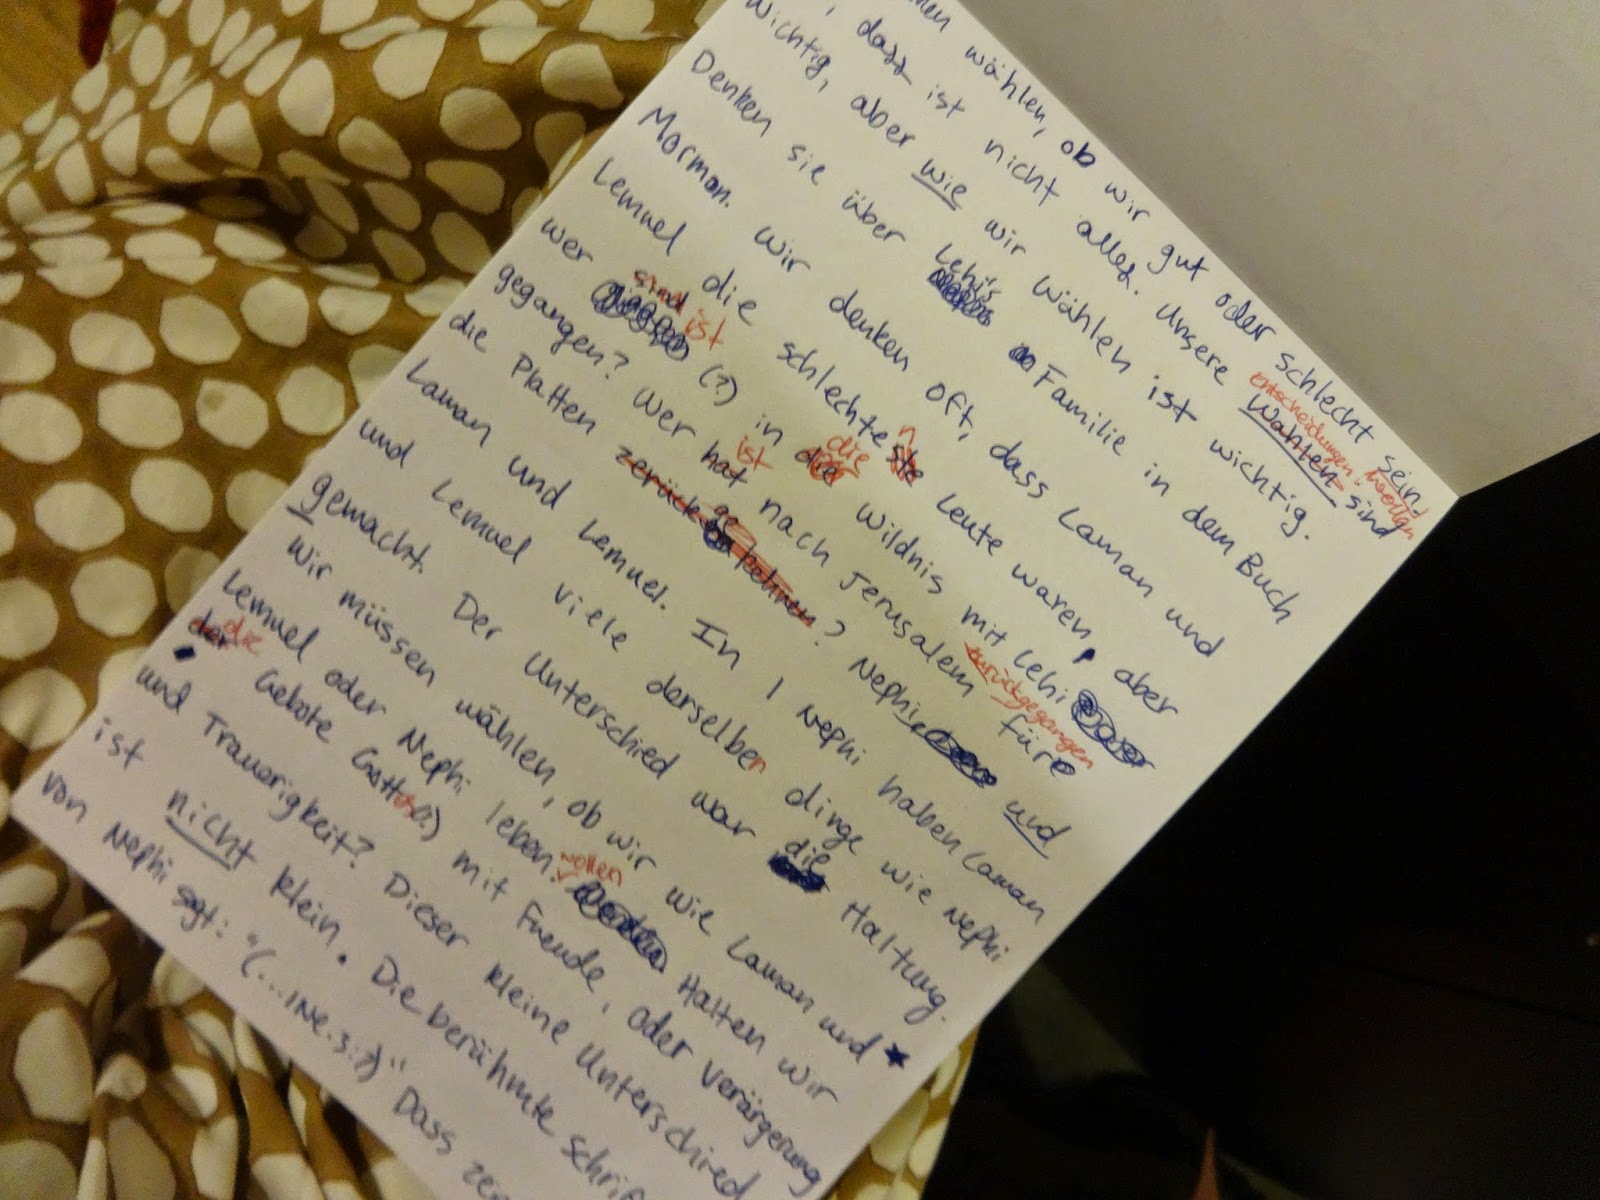 wählen, ob wir gut oder schlecht sein
, dass ist nicht alles. Unsere Wahlen sind
Entscheidungen
wichtig, aber wie wir Wählen ist wichtig.
Denken sie über Lehis Familie in dem Buch
Mormon. Wir denken oft, dass Laman und
Lemuel die schlechtesten Leute waren, aber
wer sind ist (?) in die die Wildnis mit Lehi
gegangen? Wer hat ist nach Jerusalem für
zurückgegangen
die Platten ? Nephi und
Laman und Lemuel. In 1 Nephi haben Laman
und Lemuel viele derselben dinge wie Nephi
gemacht. Der Unterschied war die Haltung.
Wir müssen wählen, ob wir wie Laman und
Lemuel oder Nephi leben. wollen Halten wir
der die Gebote Gottes(?) mit Freude, oder Verärgerung
und Traurigkeit? Dieser kleine Unterschied
ist nicht klein. Die berühmte
von Nephi sagt: "(...1Ne.3:7)" Dass